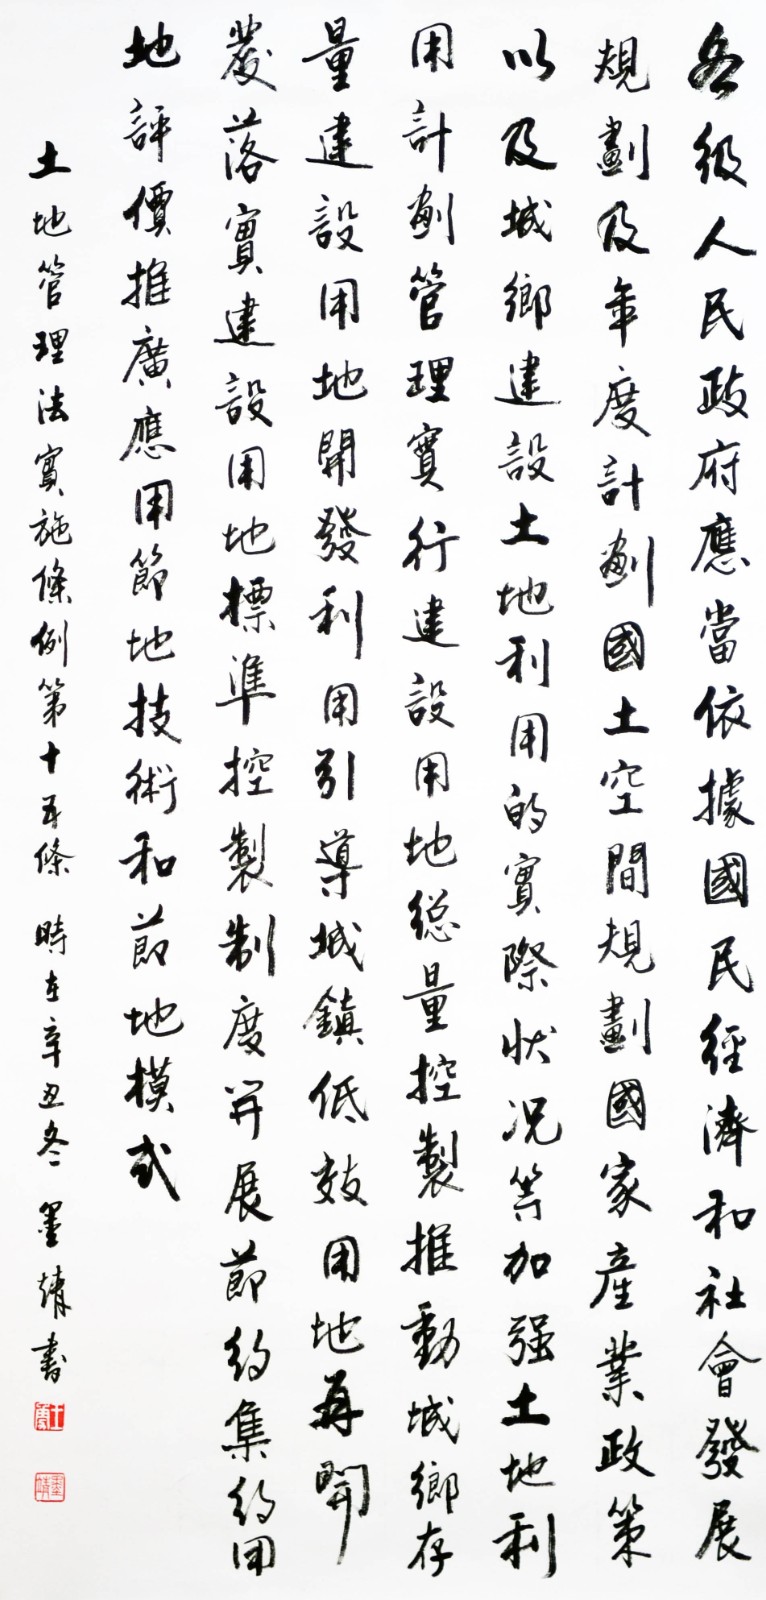 各級人民政府應當依據國民經濟和社會發展
規劃及年度計劃國土空間規劃國家產業政策
以及城鄉建設土地利用的實際狀况等加强土地利
用計劃管理實行建設用地總量控製推動城鄉存
量建設用地開發利用引導城鎮低效用地再開
發落實建設用地標準控製制度开展節約集約用
地評價推廣應用節地技術和節地模式
土地管理法實施條例第十五條 時在辛丑冬 墨靖書
墨靖